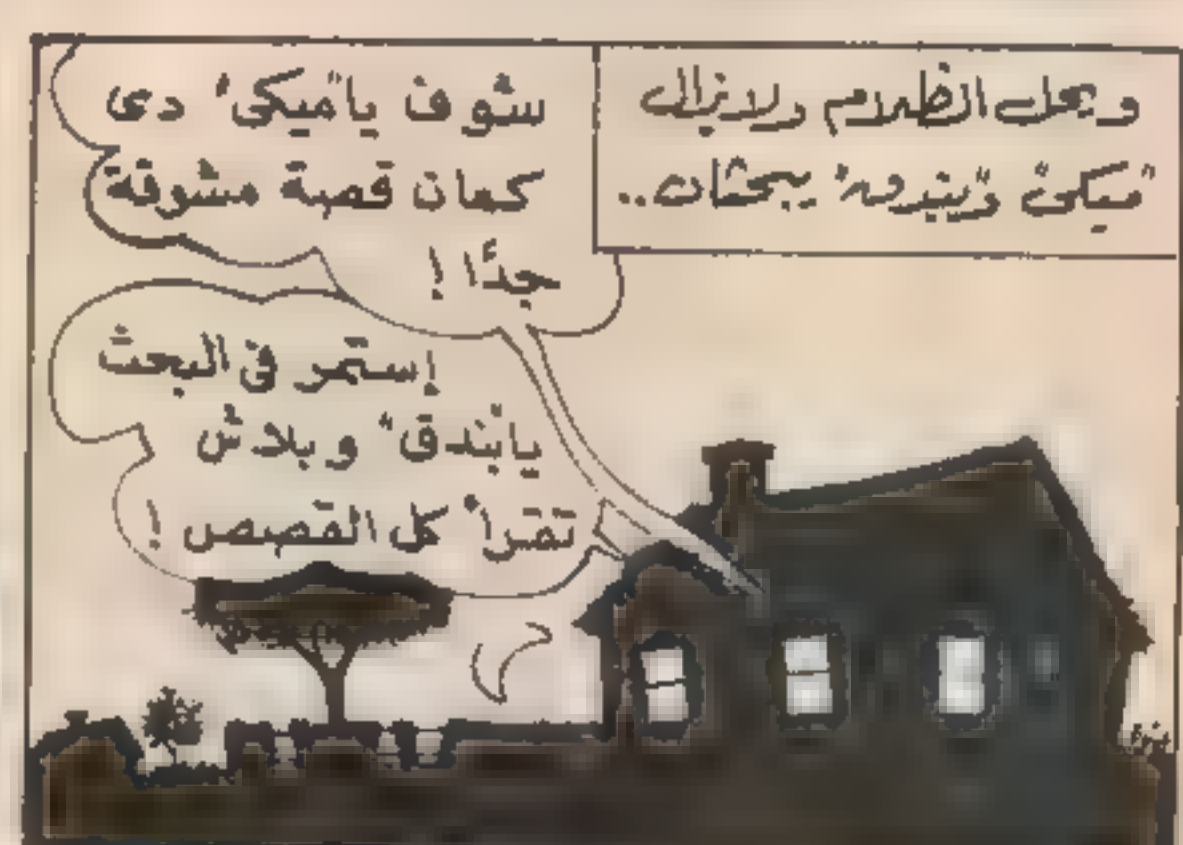 ويحل الظلام ولايزال
"ميكى" و"بندق" يبحثان..
شوف يا"ميكى" دى
كمان قصة مشوقة
جدًا !
إستمر فى البحث
يا"بندق" وبلاش
تقرأ كل القصص !